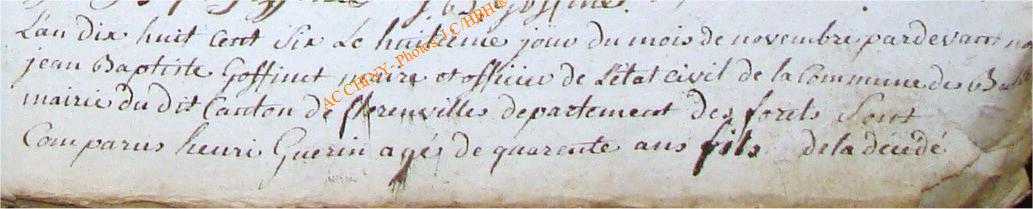 L'an dix huit Cent Six Le huitieme jour du mois de novembre pardevant
jean Baptiste Goffinet maire et officier de L'état civil de la Commune des
mairie du dit Canton de florenvilles departement des forets Sont
Comparus henri Guerin agés de quarente ans fils de la décédé
AC CHINY- Photos J.C/HBH ©